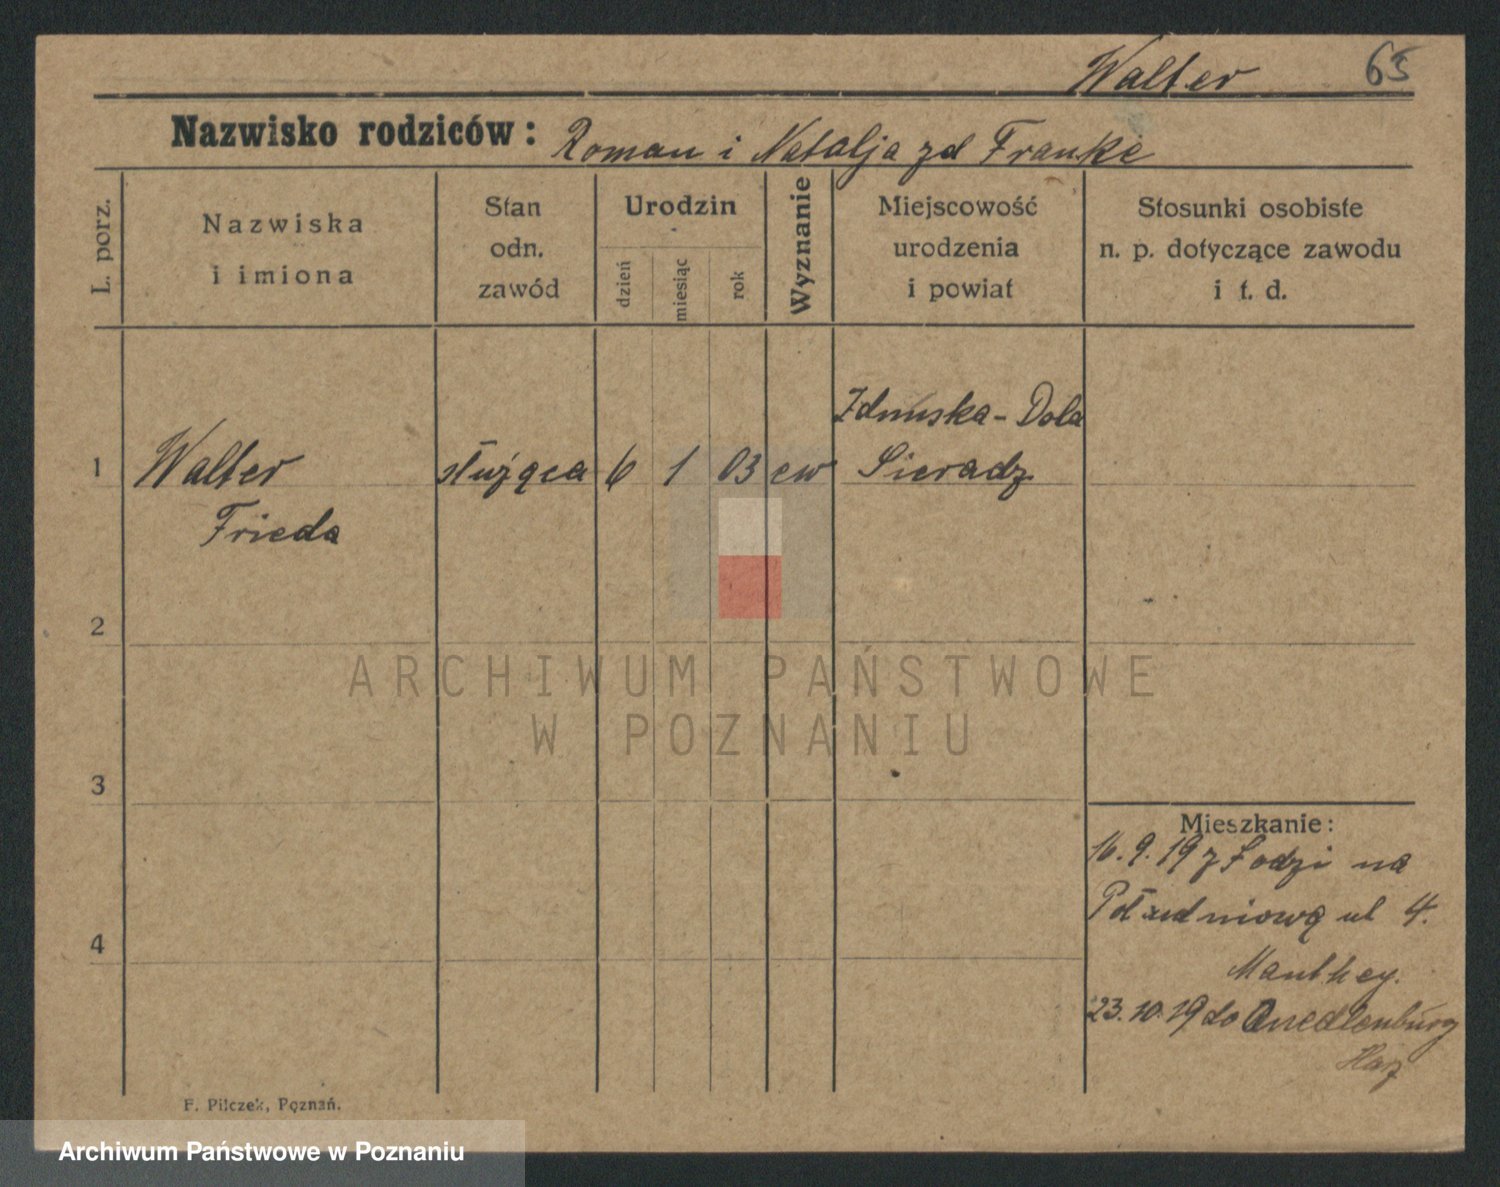 Walter 65
Nazwisko rodziców: Roman i Natalja zd Franke
L. porz.
Nazwiska
i imiona
Stan
odn.
zawód
Urodzin
dzień
miesiąc
rok
Wyznanie
Miejscowość
urodzenia
i powiat
Stosunki osobiste
n. p. dotyczące zawodu
i t. d.
Zdunska-Dola
1 Walter służąca 6 1 03 ew Sieradz
Frieda
2
ARCHIWUM PAŃSTWOWE
W POZNANIU
3
Mieszkanie:
16.9.19 z Łodzi na
Południową ul 4.
4
Manthey.
23.10.19 do Quedlenburg
Harz
F. Pilczek, Poznań.
Archiwum Państwowe w Poznaniu